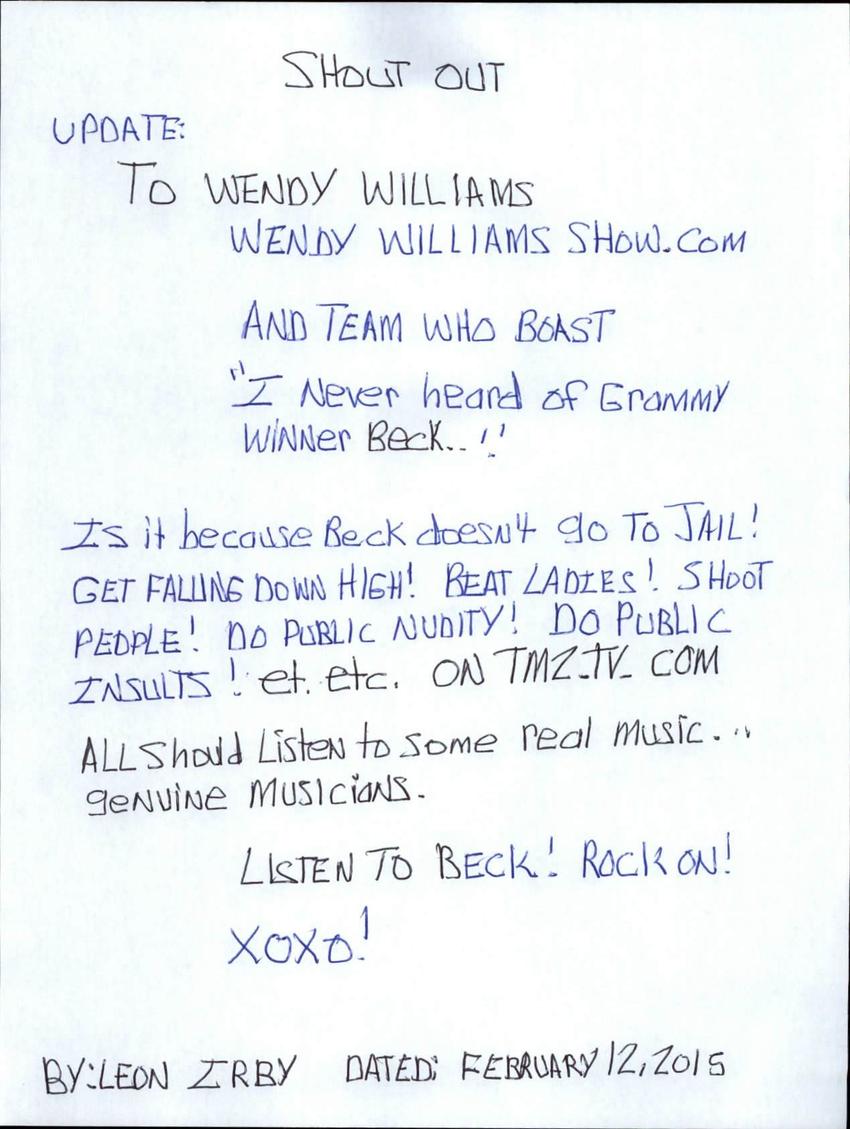 SHOUT OUT
UPDATE:
TO WENDY WILLIAMS
WENDY WILLIAMS SHOW.COM
AND TEAM WHO BOAST
"I Never heard of Grammy
WINNer Beck.. !!
Is it because Beck doesn't go TO JAIL!
GET FALLING DOWN HIGH! BEAT LADIES! SHOOT
PEOPLE! DO PUBLIC NUDITY! DO PUBLIC
INSULTS! et. etc. ON TMZ.TV. COM
ALL Should Listen to some real music...
geNuine Musicians.
LISTEN TO BECK! ROCK ON!
XOXO!
BY:LEON IRBY DATED: FEBRUARY 12, 2015